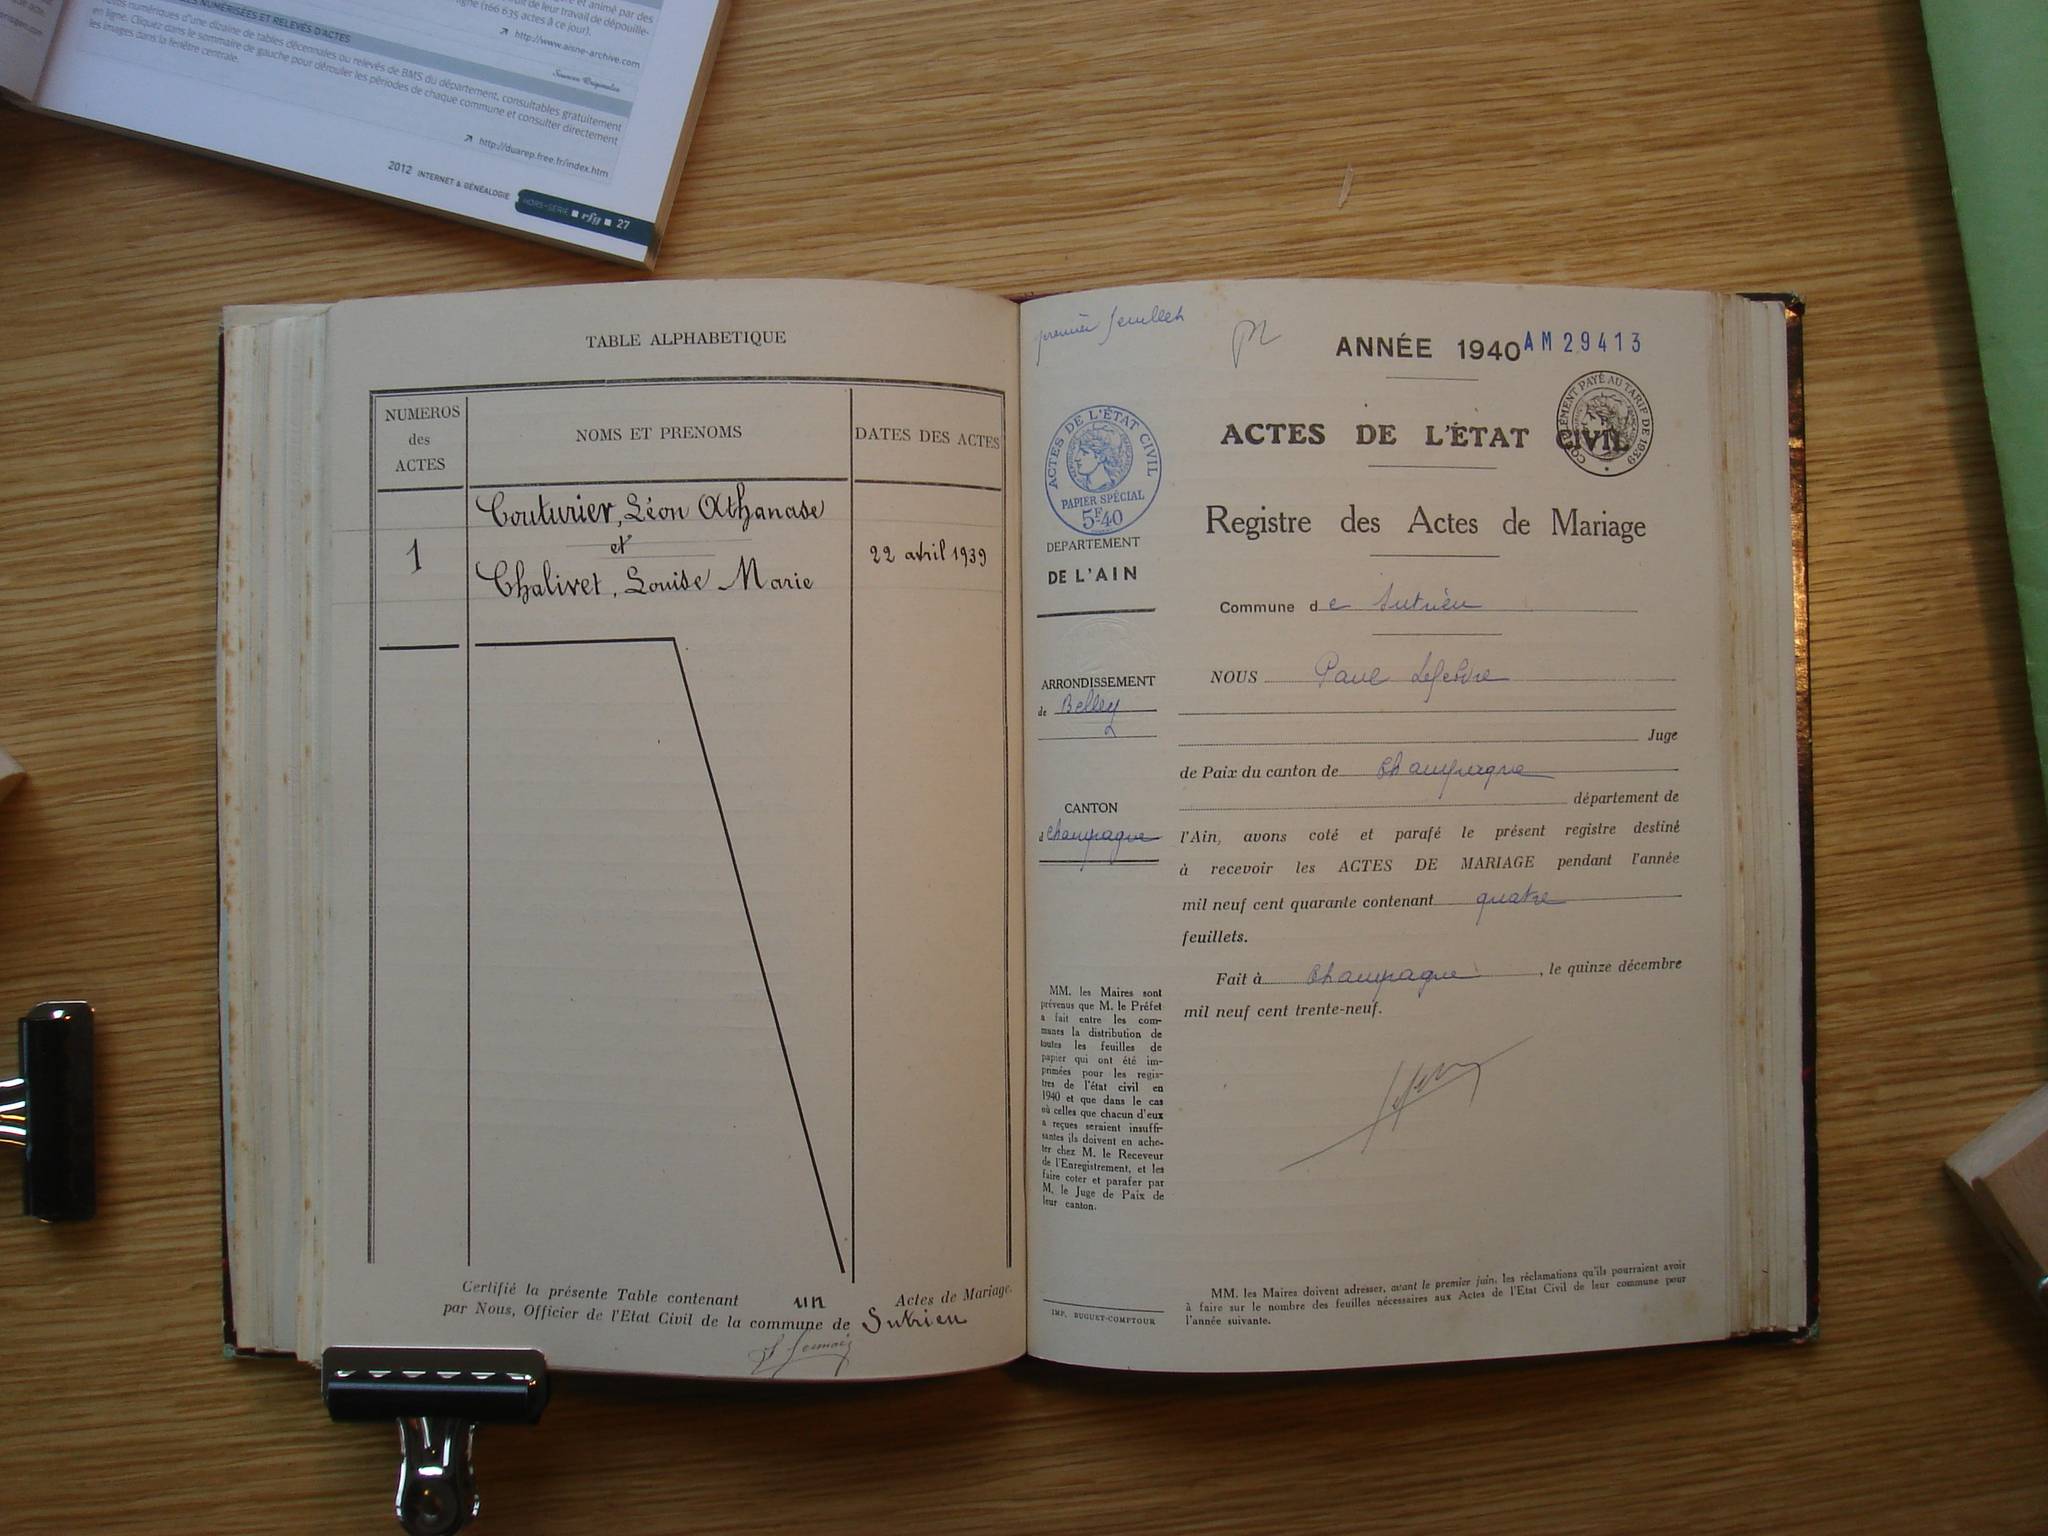 et animé par des
uit de leur travail de dépouille-
ligne (166 635 actes à ce jour).
↗ http://www.aisne-archive.com
NUMÉRISÉES ET RELEVÉS D'ACTES
Sources Originales
numériques d'une dizaine de tables décennales ou relevés de BMS du département, consultables gratuitement
en ligne. Cliquez dans le sommaire de gauche pour dérouler les périodes de chaque commune et consulter directement
les images dans la fenêtre centrale.
↗ http://duarep.free.fr/index.htm
2012 INTERNET & GÉNÉALOGIE HORS-SÉRIE ■ rfg ■ 27
TABLE ALPHABETIQUE
NUMEROS
des
ACTES
NOMS ET PRENOMS
DATES DES ACTES
1
Couturier, Léon Athanase
et
Chalivet, Louise Marie
22 avril 1939
Certifié la présente Table contenant un Actes de Mariage.
par Nous, Officier de l'Etat Civil de la commune de Sutrieu
premier feuillet
ANNÉE 1940
AM29413
ACTES DE L'ÉTAT CIVIL
COMPLÉMENT PAYÉ AU TARIF DE 1939
ACTES DE L'ÉTAT CIVIL
PAPIER SPÉCIAL
5F40
Registre des Actes de Mariage
DEPARTEMENT
DE L'AIN
Commune de Sutrieu
ARRONDISSEMENT
de Belley
CANTON
d Champagne
NOUS Paul Lefebvre
Juge
de Paix du canton de Champagne
département de
l'Ain, avons coté et parafé le présent registre destiné
à recevoir les ACTES DE MARIAGE pendant l'année
mil neuf cent quarante contenant quatre
feuillets.
Fait à Champagne, le quinze décembre
mil neuf cent trente-neuf.
MM. les Maires sont
prévenus que M. le Préfet
a fait entre les com-
munes la distribution de
toutes les feuilles de
papier qui ont été im-
primées pour les regis-
tres de l'état civil en
1940 et que dans le cas
où celles que chacun d'eux
a reçues seraient insuffi-
santes ils doivent en ache-
ter chez M. le Receveur
de l'Enregistrement, et les
faire coter et parafer par
M. le Juge de Paix de
leur canton.
IMP. BUGUET-COMPTOUR
MM. les Maires doivent adresser, avant le premier juin, les réclamations qu'ils pourraient avoir
à faire sur le nombre des feuilles nécessaires aux Actes de l'Etat Civil de leur commune pour
l'année suivante.